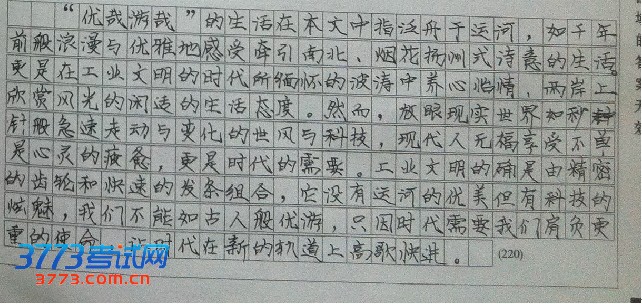 “优哉游哉”的生活在本文中指泛舟于运河，如千年
前般浪漫与优雅地感受牵引南北、烟花扬州式诗意的生活。
更是在工业文明的时代所缅怀的波涛中养心怡情，两岸上
欣赏风光的闲适的生活态度。然而，放眼现实世界如秒
针般急速走动与变化的世风与科技，现代人无福享受不单
是心灵的疲惫，更是时代的需要。工业文明的确是由精密
的齿轮和快速的发条组合，它没有运河的优美但有科技的
炫魅，我们不能如古人般优游，只因时代需要我们肩负更
重的使命，让时代在新的轨道上高歌快进。 (220)
3773考试网
3773.com.cn